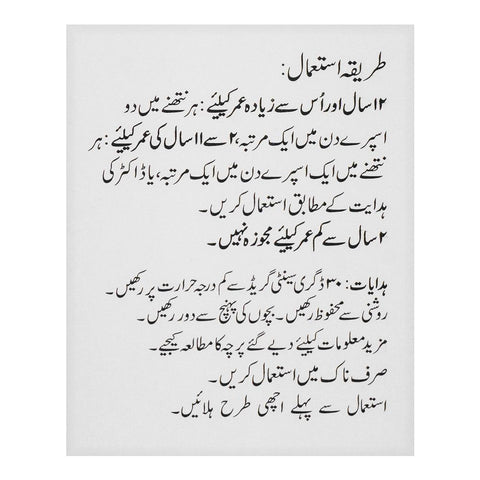 طریقہ استعمال:
۱۲ سال اور اُس سے زیادہ عمر کیلئے: ہر نتھنے میں دو
اسپرے دن میں ایک مرتبہ، ۲ سے ۱۱ سال کی عمر کیلئے: ہر
نتھنے میں ایک اسپرے دن میں ایک مرتبہ، یا ڈاکٹر کی
ہدایت کے مطابق استعمال کریں۔
۲ سال سے کم عمر کیلئے مجوزہ نہیں۔
ہدایات: ۳۰ ڈگری سینٹی گریڈ سے کم درجہ حرارت پر رکھیں۔
روشنی سے محفوظ رکھیں۔ بچوں کی پہنچ سے دور رکھیں۔
مزید معلومات کیلیئے دیے گئے پرچہ کا مطالعہ کیجیے۔
صرف ناک میں استعمال کریں۔
استعمال سے پہلے اچھی طرح ہلائیں۔